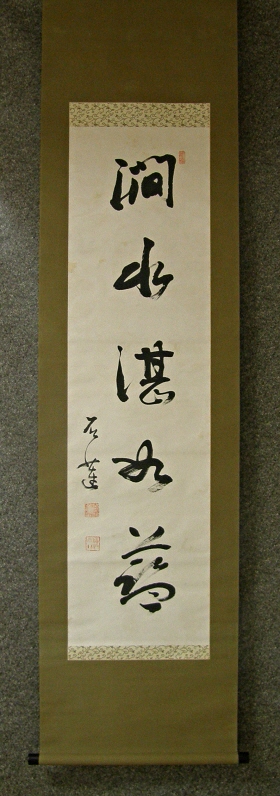 澗水湛如藍
石蓮